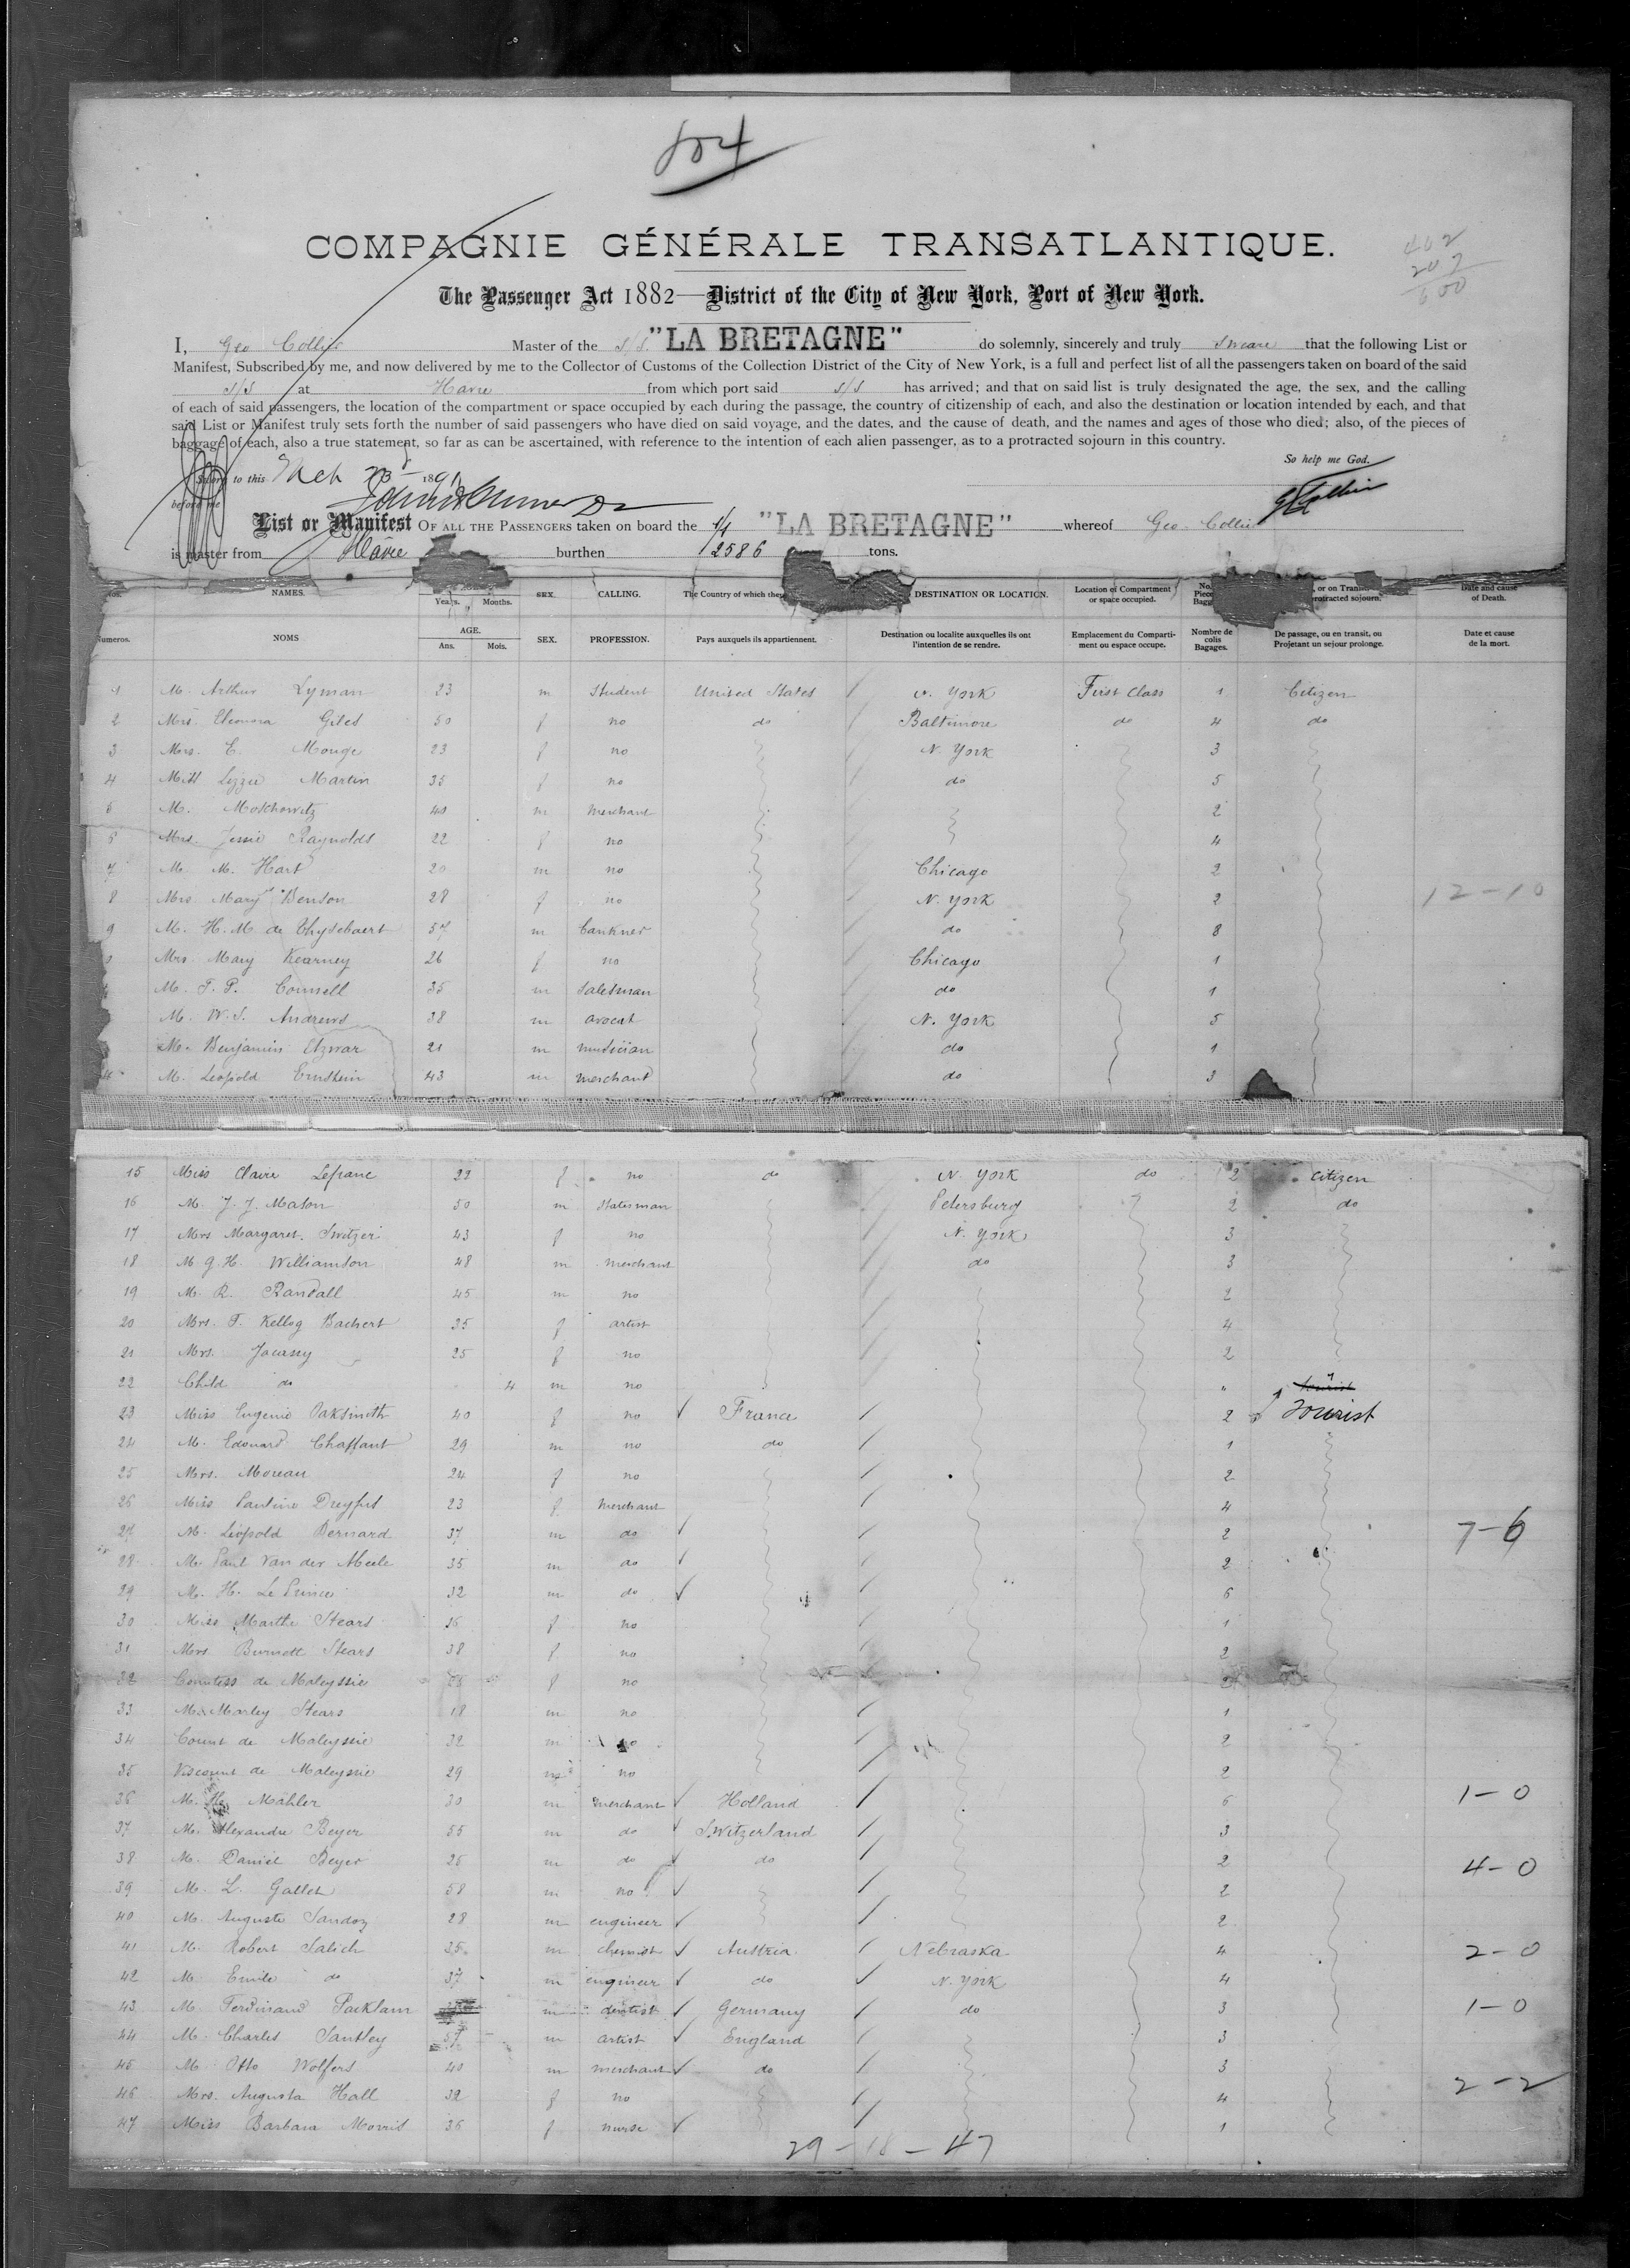 804
COMPAGNIE GÉNÉRALE TRANSATLANTIQUE.
402
207
600
The Passenger Act 1882—District of the City of New York, Port of New York.
I, Geo Collier Master of the s/s "LA BRETAGNE" do solemnly, sincerely and truly sweare that the following List or
Manifest, Subscribed by me, and now delivered by me to the Collector of Customs of the Collection District of the City of New York, is a full and perfect list of all the passengers taken on board of the said
s/s at Havre from which port said s/s has arrived; and that on said list is truly designated the age, the sex, and the calling
of each of said passengers, the location of the compartment or space occupied by each during the passage, the country of citizenship of each, and also the destination or location intended by each, and that
said List or Manifest truly sets forth the number of said passengers who have died on said voyage, and the dates, and the cause of death, and the names and ages of those who died; also, of the pieces of
baggage of each, also a true statement, so far as can be ascertained, with reference to the intention of each alien passenger, as to a protracted sojourn in this country.
So help me God.
Sworn to this Mch 23 1891
before me
List or Manifest OF ALL THE PASSENGERS taken on board the s/s "LA BRETAGNE" whereof Geo. Collier
is master from Havre burthen 2586 tons.
Nos. NAMES. Years. Months. SEX. CALLING. The Country of which they DESTINATION OR LOCATION. Location of Compartment or space occupied. No. Piece Bagg , or on Transit protracted sojourn. Date and cause of Death.
Numeros. NOMS AGE. Ans. Mois. SEX. PROFESSION. Pays auxquels ils appartiennent. Destination ou localite auxquelles ils ont l'intention de se rendre. Emplacement du Compartiment ou espace occupe. Nombre de colis Bagages. De passage, ou en transit, ou Projetant un sejour prolonge. Date et cause de la mort.
1 M. Arthur Lyman 23 m student United States N. York First Class 1 Citizen
2 Mrs. Eleonora Giles 50 f no do Baltimore do 4 do
3 Mrs. E. Mouge 23 f no N. York 3
4 Miss Lizzie Martin 35 f no do 5
5 M. Moskowitz 40 m merchant 2
6 Mrs. Jessie Raynolds 22 f no 4
7 M. M. Hart 20 m no Chicago 2
8 Mrs. Mary Benson 28 f no N. York 2 12-10
9 M. H. M. de Thysebaert 57 m bankner do 8
Mrs. Mary Kearney 26 f no Chicago 1
M. T. P. Counsell 35 m salesman do 1
M. W. S. Andrews 38 m avocat N. York 5
M. Benjamin Elzwar 21 m musician do 1
M. Leopold Ernstein 43 m merchant do 3
15 Miss Claire Lefranc 22 f no do N. York do 2 citizen
16 M. J. J. Mason 50 m statesman Petersburg 2 do
17 Mrs Margaret Switzer 43 f no N. York 3
18 M. G. H. Williamson 48 m merchant do 3
19 M. R. Randall 45 m no 2
20 Mrs. T. Kellog Bachert 35 f artist 4
21 Mrs. Jacassy 25 f no 2
22 Child do 4 m no " tourist
23 Miss Eugenie Oaksmith 40 f no France 2 Tourist
24 M. Edouard Chaffaut 29 m no do 1
25 Mrs. Moreau 24 f no 2
26 Miss Pauline Dreyfus 23 f merchant 4
27 M. Leopold Bernard 37 m do 2 7-6
28 M. Paul Van der Meele 35 m do 2
29 M. H. Le Prince 32 m do 6
30 Miss Marthe Stears 16 f no 1
31 Mrs Burnett Stears 38 f no 2
32 Countess de Maleyssie f no 2
33 M. Marley Stears 18 m no 1
34 Count de Maleyssie 32 m no 2
35 Viscount de Maleyssie 29 m no 2
36 M. Mahler 30 m merchant Holland 6 1-0
37 M. Alexandre Beyer 55 m do Switzerland 3
38 M. Daniel Beyer 25 m do do 2 4-0
39 M. L. Gallet 58 m no 2
40 M. Auguste Sandoz 28 m engineer 2
41 M. Robert Salich 35 m chemist Austria Nebraska 4 2-0
42 M. Emile do 37 m engineer do N. York 4
43 M. Ferdinand Packlam m dentist Germany do 3 1-0
44 M. Charles Santley 57 m artist England 3
45 M. Otto Wolfers 40 m merchant do 3
46 Mrs. Augusta Hall 32 f no 4 2-2
47 Miss Barbara Morris 36 f nurse 1
29-18-47